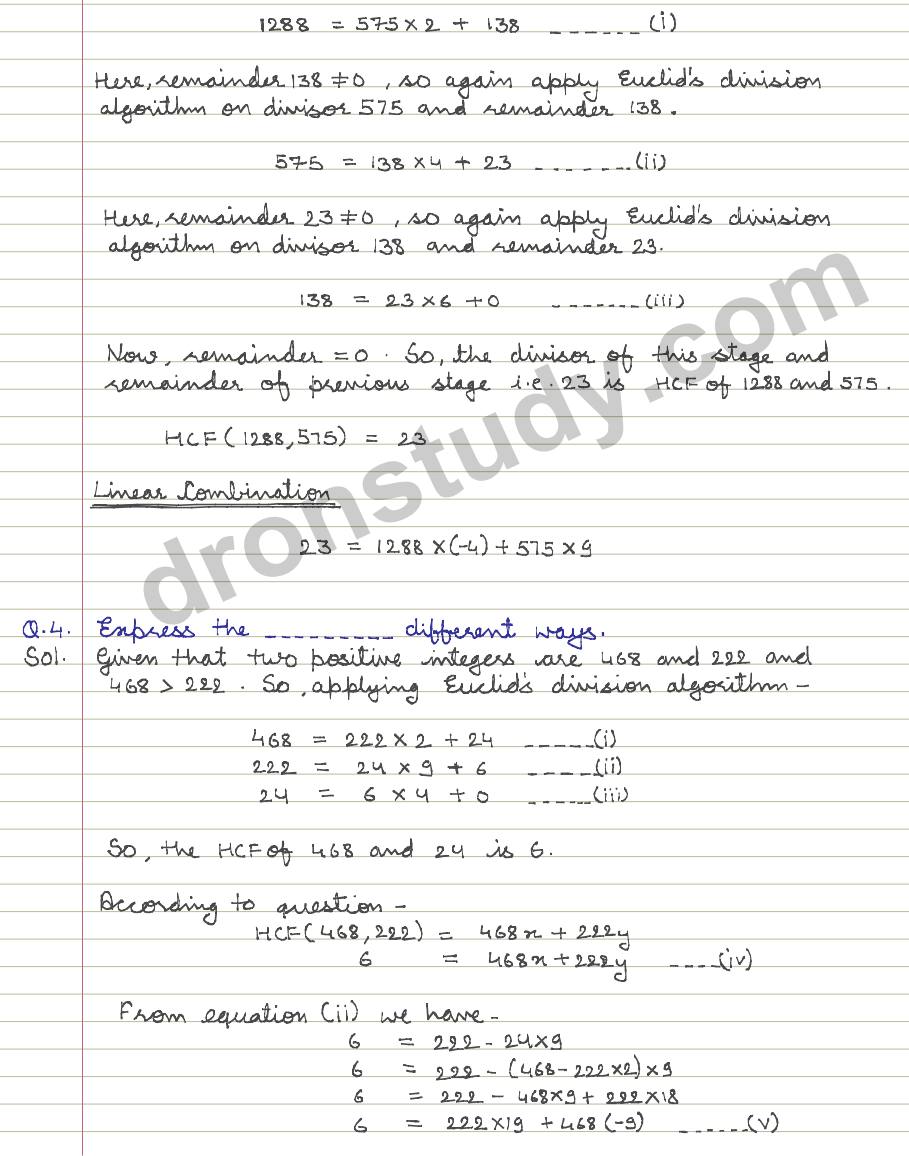 1288 = 575 × 2 + 138 ------ (i)
Here, remainder 138 ≠ 0 , so again apply Euclid's division
algorithm on divisor 575 and remainder 138 .
575 = 138 × 4 + 23 ------- (ii)
Here, remainder 23 ≠ 0 , so again apply Euclid's division
algorithm on divisor 138 and remainder 23.
138 = 23 × 6 + 0 ------- (iii)
Now, remainder = 0 . So, the divisor of this stage and
remainder of previous stage i.e. 23 is HCF of 1288 and 575 .
HCF ( 1288, 575) = 23
Linear Combination
23 = 1288 × (-4) + 575 × 9
dronstudy.com
Q.4. Express the --------- different ways.
Sol. Given that two positive integers are 468 and 222 and
468 > 222 . So, applying Euclid's division algorithm -
468 = 222 × 2 + 24 ----- (i)
222 = 24 × 9 + 6 ----- (ii)
24 = 6 × 4 + 0 ------ (iii)
So, the HCF of 468 and 24 is 6.
According to question -
HCF ( 468, 222) = 468x + 222y
6 = 468x + 222y ---- (iv)
From equation (ii) we have -
6 = 222 - 24×9
6 = 222 - (468 - 222×2) × 9
6 = 222 - 468×9 + 222×18
6 = 222×19 + 468 (-9) ------ (v)